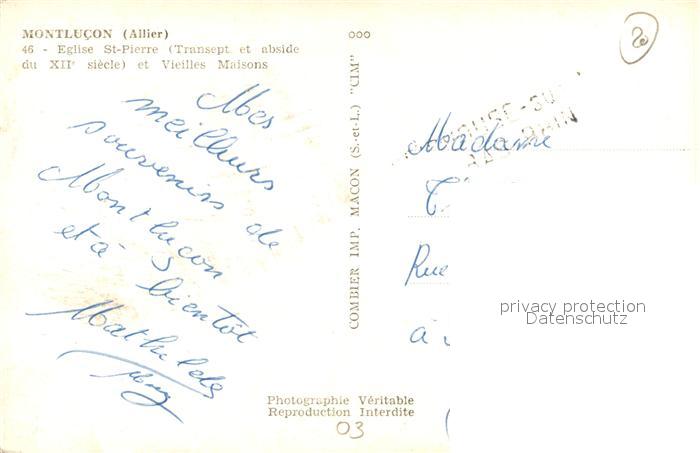 MONTLUÇON (Allier)
46 - Eglise St-Pierre (Transept et abside
du XIIe siècle) et Vieilles Maisons
Mes
meilleurs
souvenirs de
Montluçon
et à bientôt
Mathilde
COMBIER IMP. MACON (S.-et-L.) "CIM"
Madame
Rue
à
privacy protection
Datenschutz
Photographie Véritable
Reproduction Interdite
03